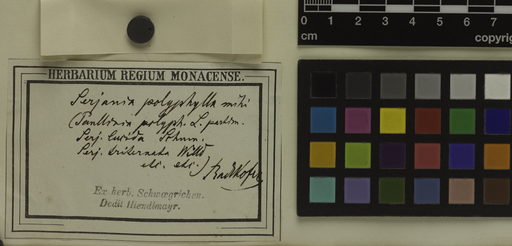 HERBARIUM REGIUM MONACENSE.
Serjania polyphylla mihi
(Paullinia polyph. L. partim.
Serj. lucida Schum.
Serj. triternata Willd
etc. etc.) Radlkofer
Ex herb. Schwægrichen.
Dedit Hiendlmayr.
cm 1 2 3 4 5 6 7
copyrig